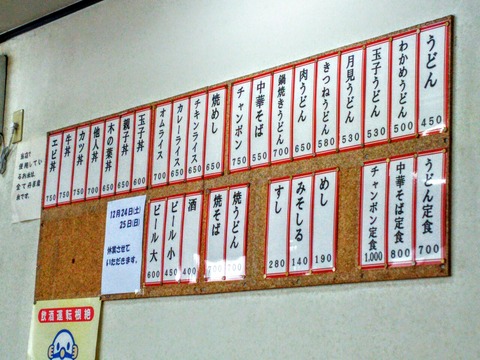 うどん 450
わかめうどん 500
玉子うどん 530
月見うどん 530
きつねうどん 580
肉うどん 650
鍋焼きうどん 700
中華そば 550
チャンポン 750
焼めし 650
チキンライス 650
カレーライス 650
オムライス 700
玉子丼
親子丼 650
木の葉丼 650
他人丼 700
カツ丼 750
牛丼 750
エビ丼 750
うどん定食 700
中華そば定食 800
チャンポン定食 1,000
めし 190
みそしる 140
すし 280
焼うどん 700
焼そば 700
酒 400
ビール小 450
ビール大 600
12月24日(土)
25日(日)
休業させて
いただきます。
飲酒運転根絶